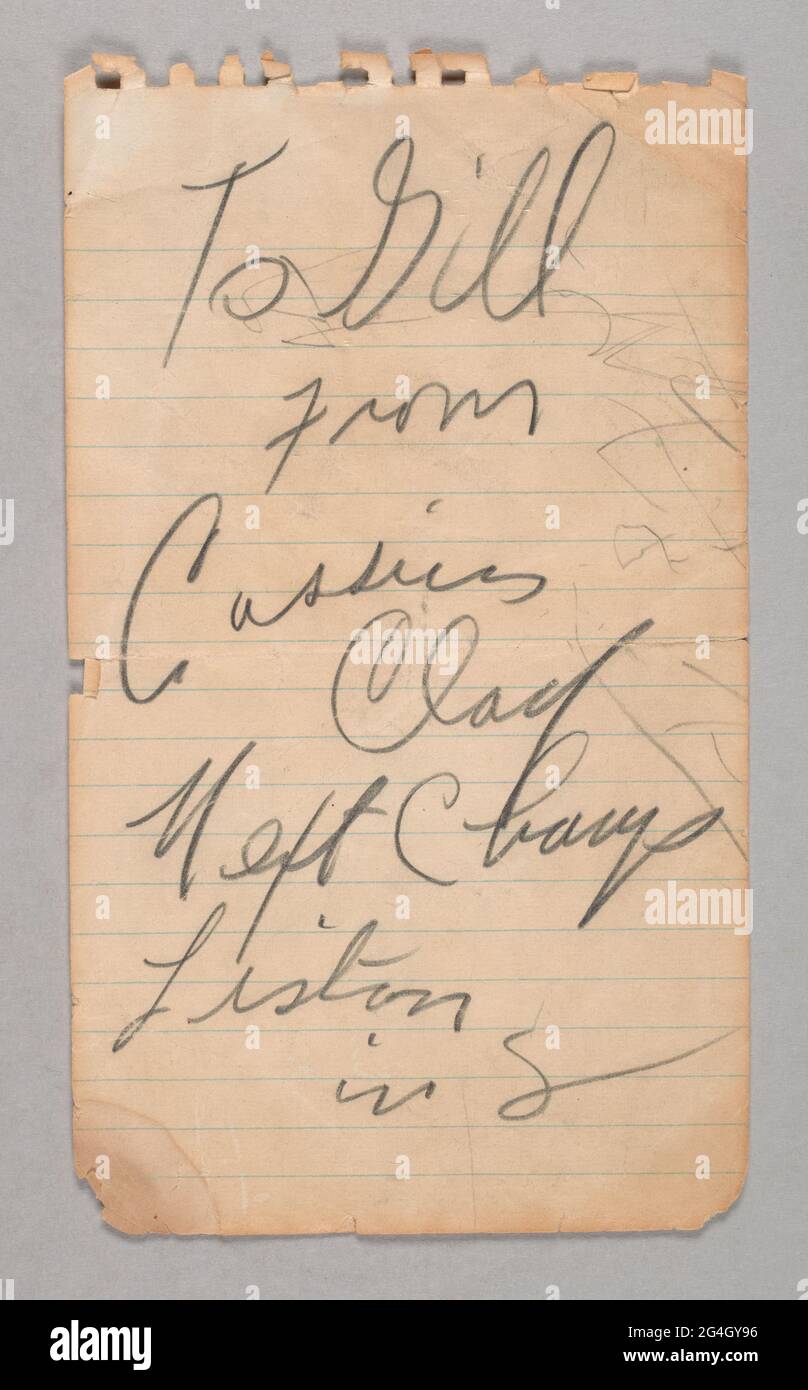 To Gill
From
Cassius
Clay
Next Champ
Liston
in 8
alamy
alamy
alamy
alamy
Image ID: 2G4GY96
www.alamy.com